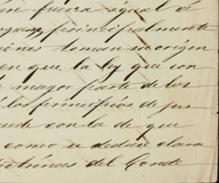 fuerza igual á
principalmente
toman su origen
en que la ley que con
mayor parte de los
los principios de jus
que
como se deduce clara
doctrinas del Conde